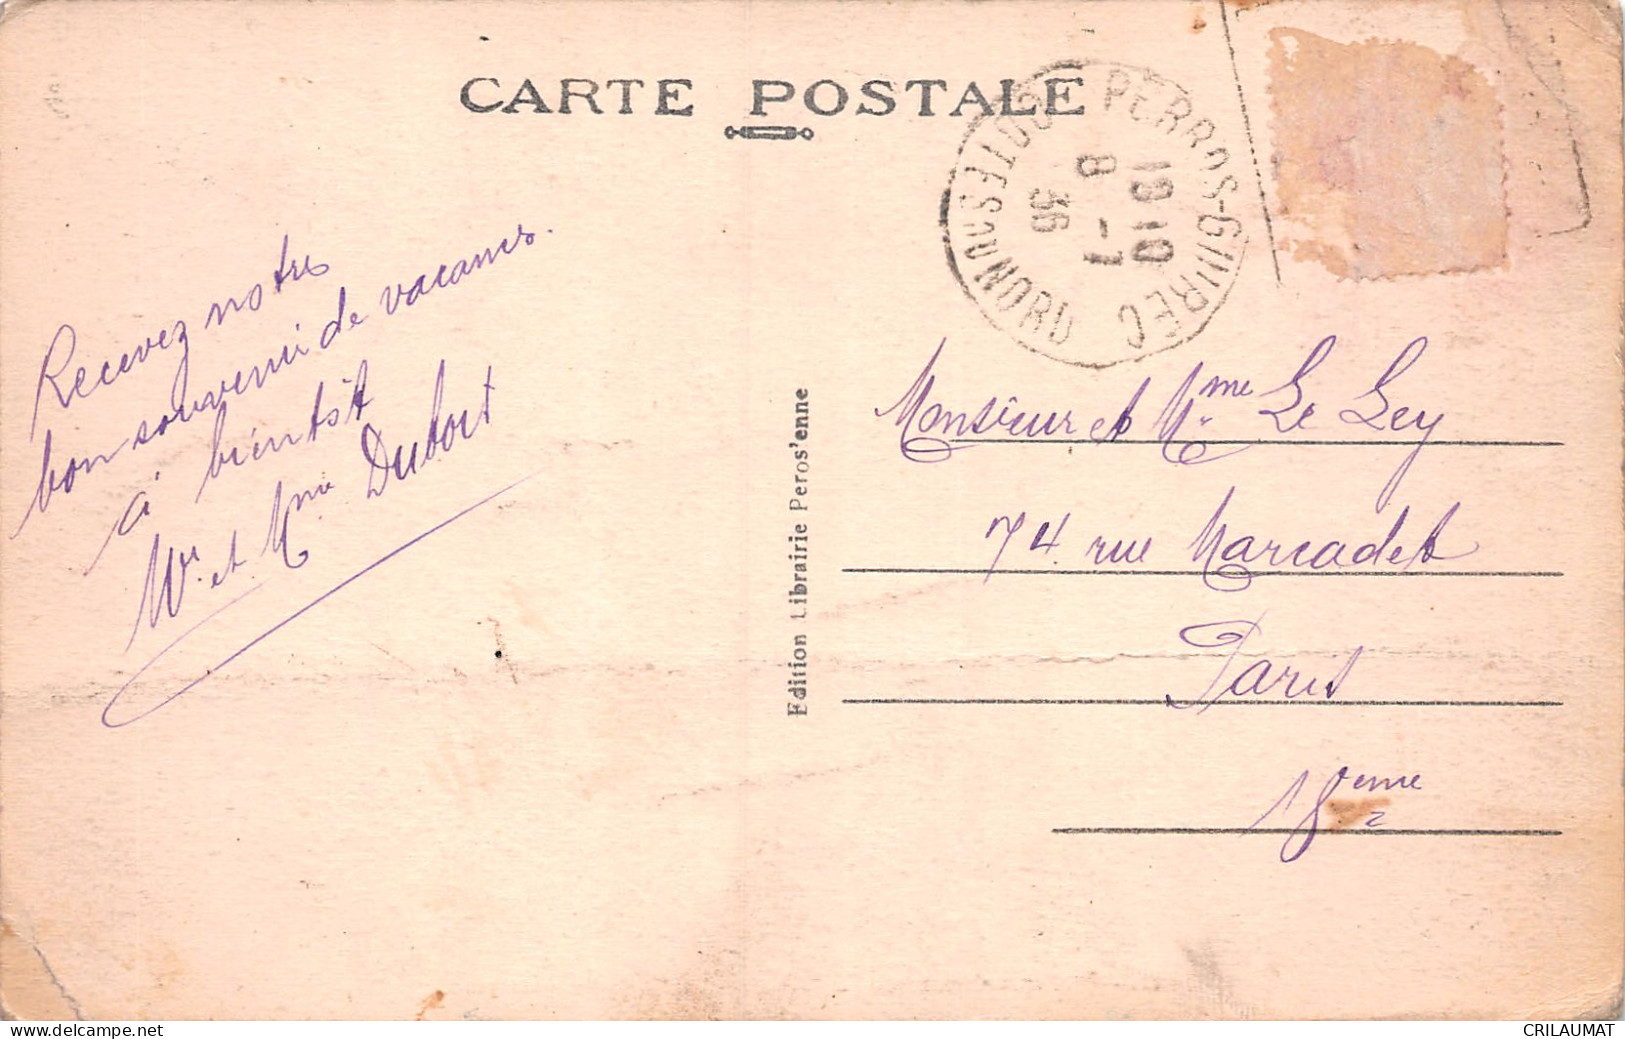 CARTE POSTALE
PERROS-GUIREC
18 10
8 -7
36
COTES DU NORD
Recevez notre
bon souvenir de vacances.
à bientôt
Mr. et Mme Dubort
Edition Librairie Peros'enne
Monsieur et Mme Le Ley
74 rue Marcadet
Paris
18eme
CRILAUMAT